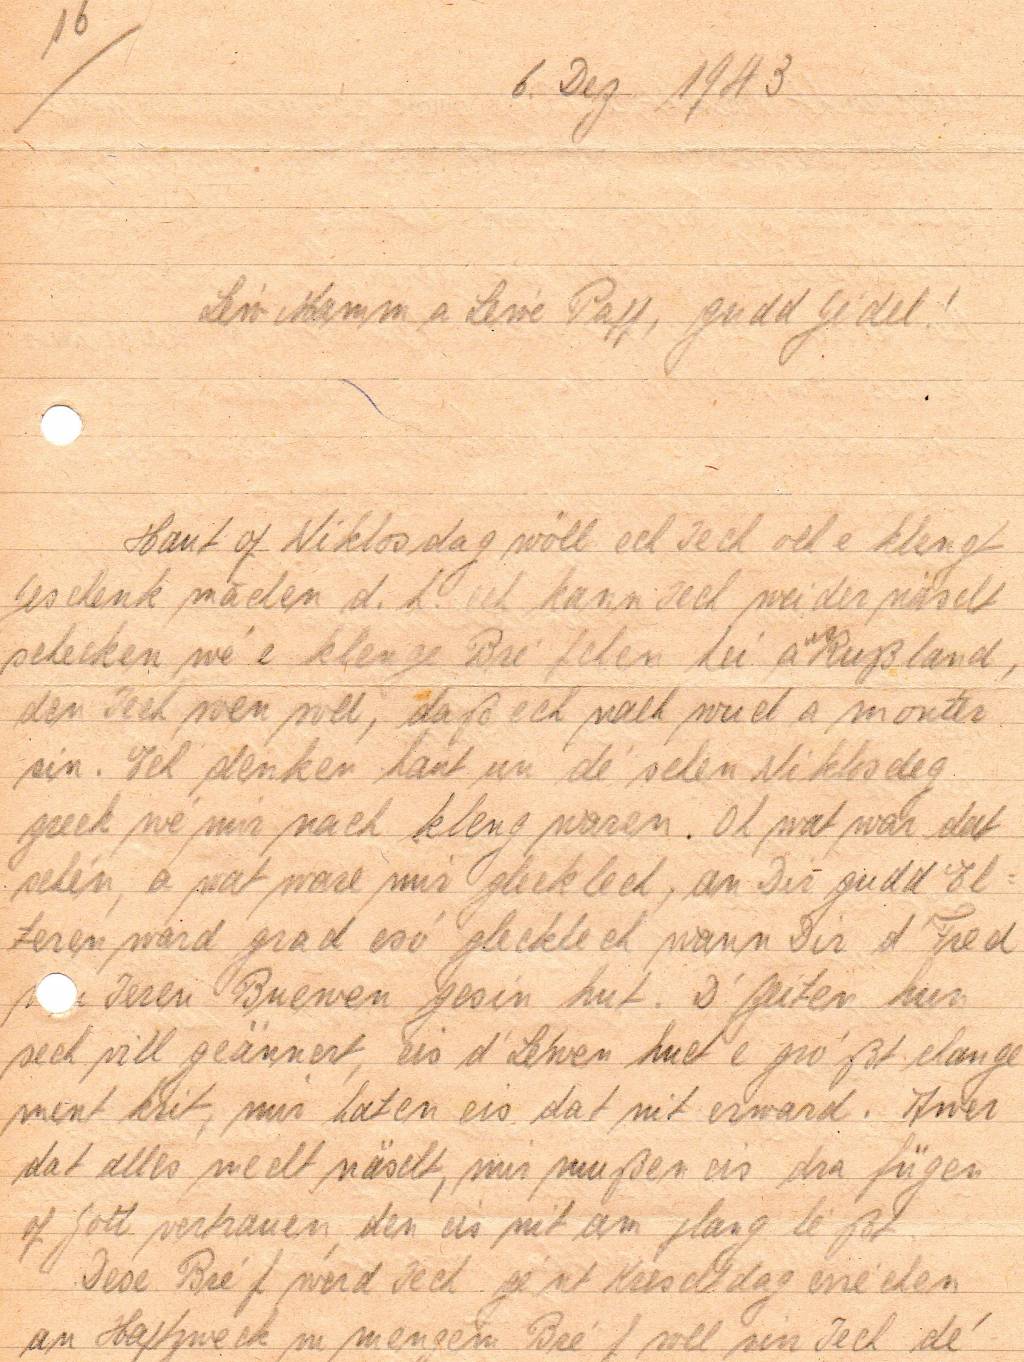 16
6. Dez 1943
Léiw Mamm a Léiwe Papp, gudd Gédel!
Haut op Niklosdag wöll ech Iech och e klengt
Geschenk mächen d. h. ech kann Iech weider näscht
schecken wé e klenge Bréfchen hei aus Rußland,
den Iech soen soll, daß ech nach wuel a monter
sin. Ech denken haut un dé schén Niklosdeg
zreck wé mir nach kleng waren. Oh wat war dat
schén, a wat ware mir glecklech, an Dir gudd El=
teren, ward grad esó glecklech wann Dir d'Fred
Ieren Buewen gesin hut. D'Zeiten hun
sech vill geännert, eis d'Léwen huet e gró ßt change
ment krit, mir haten eis dat nit erward. Awer
dat alles mecht näscht, mir mußen eis dra fügen
op Gott vertrauen, den eis nit am Stang lé ßt.
Dese Bréf werd Iech gént Kreschtdag erréchen
an Haptzweck vu mengem Bréf soll sin Iech dé